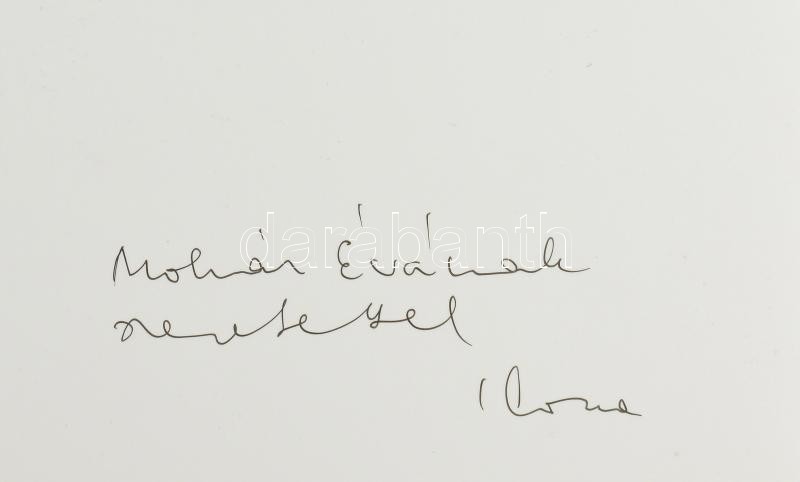 Molnár Évának
szeretettel
Ilona
darabanth